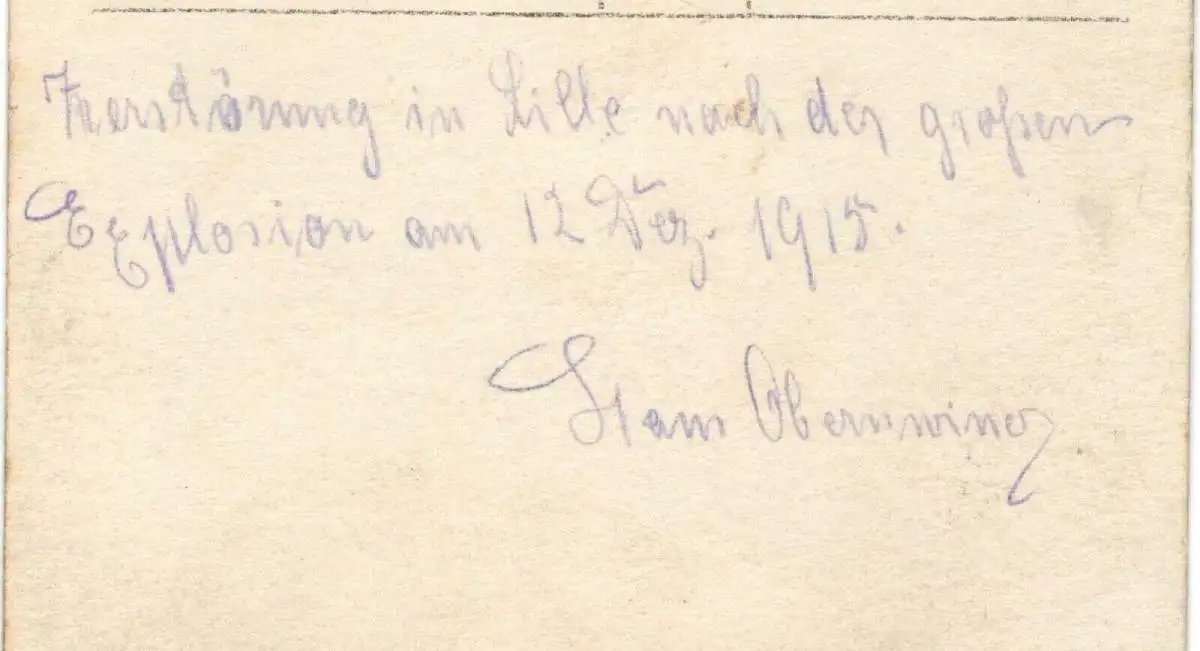 Zerstörung in Lille nach der großen
Explosion am 12 Dez. 1915.